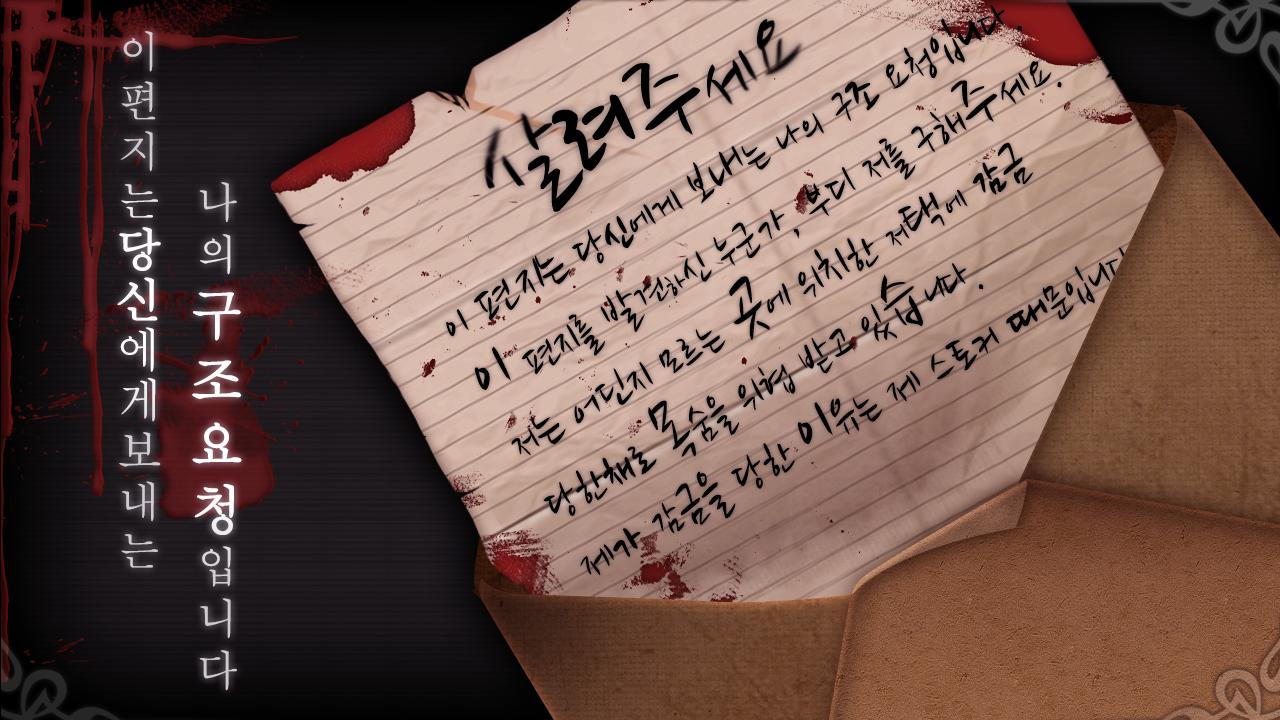 이편지는당신에게보내는
나의구조요청입니다
살려주세요
이 편지는 당신에게 보내는 나의 구조 요청입니다.
이 편지를 발견하신 누군가, 부디 저를 구해주세요.
저는 어딘지 모르는 곳에 위치한 저택에 감금
당한채로 목숨을 위협 받고 있습니다.
제가 감금을 당한 이유는 제 스토커 때문입니다